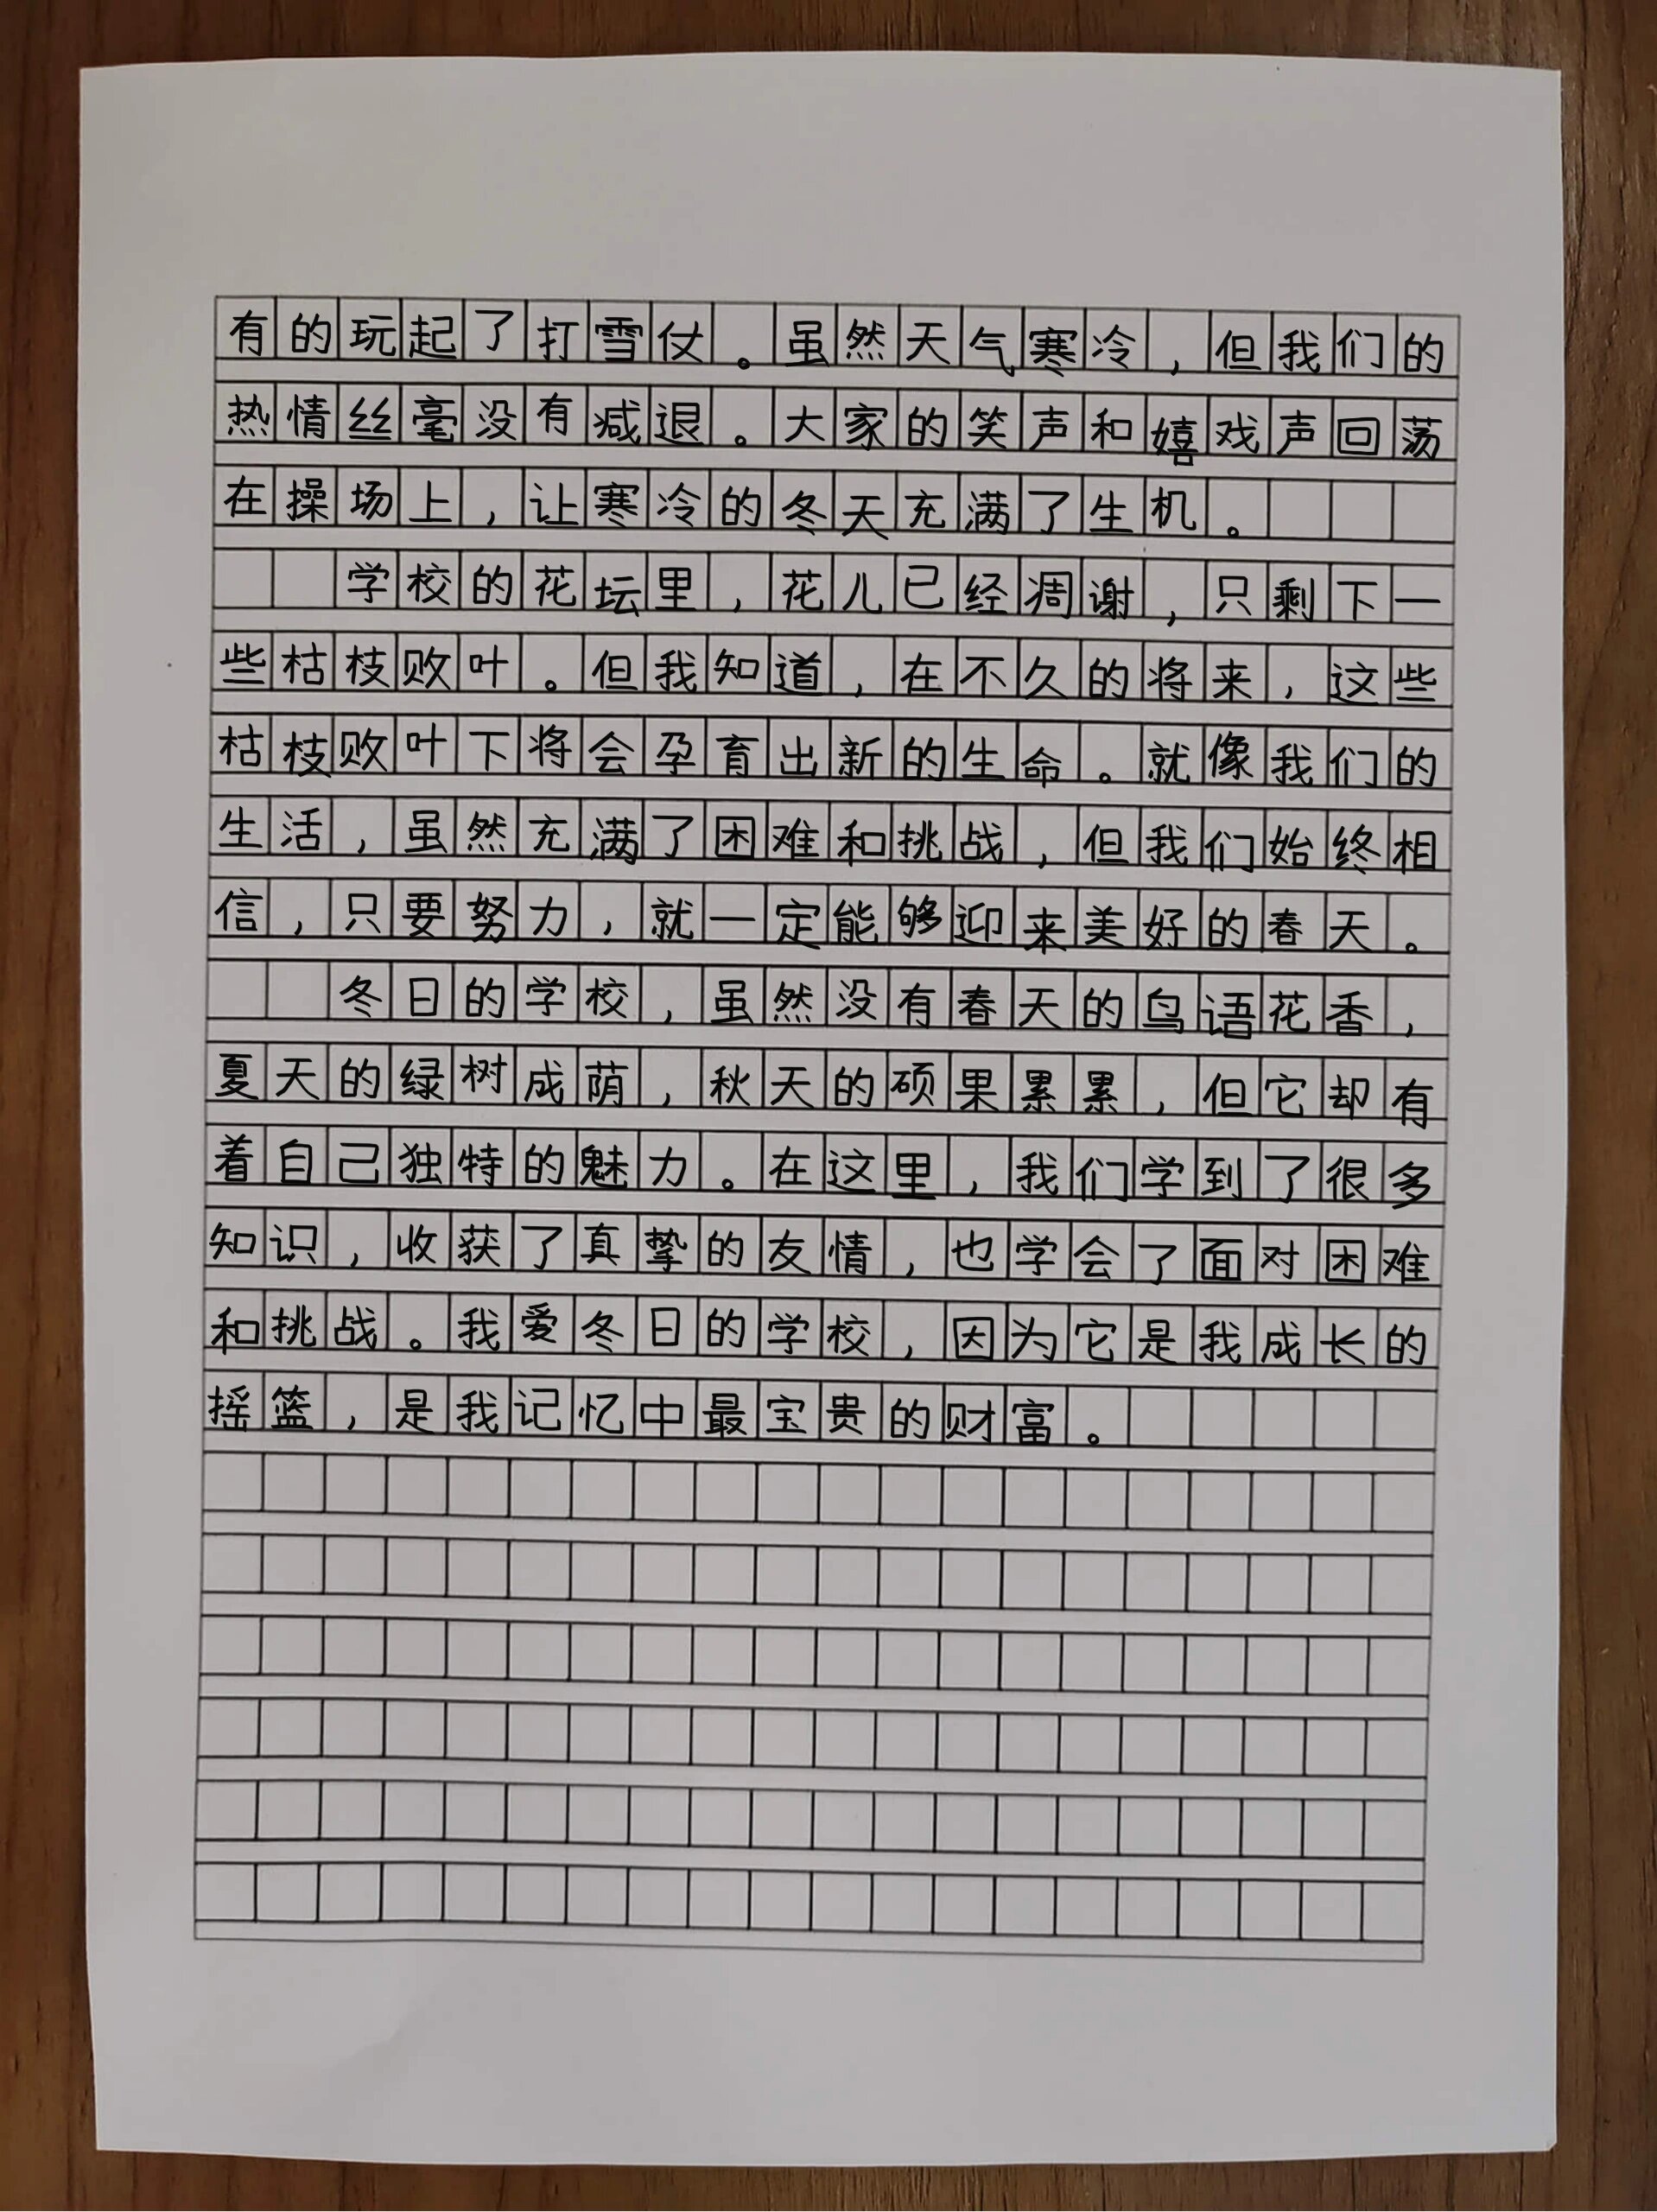 有的玩起了打雪仗。虽然天气寒冷，但我们的
热情丝毫没有减退。大家的笑声和嬉戏声回荡
在操场上，让寒冷的冬天充满了生机。
学校的花坛里，花儿已经凋谢，只剩下一
些枯枝败叶。但我知道，在不久的将来，这些
枯枝败叶下将会孕育出新的生命。就像我们的
生活，虽然充满了困难和挑战，但我们始终相
信，只要努力，就一定能够迎来美好的春天。
冬日的学校，虽然没有春天的鸟语花香，
夏天的绿树成荫，秋天的硕果累累，但它却有
着自己独特的魅力。在这里，我们学到了很多
知识，收获了真挚的友情，也学会了面对困难
和挑战。我爱冬日的学校，因为它是我成长的
摇篮，是我记忆中最宝贵的财富。